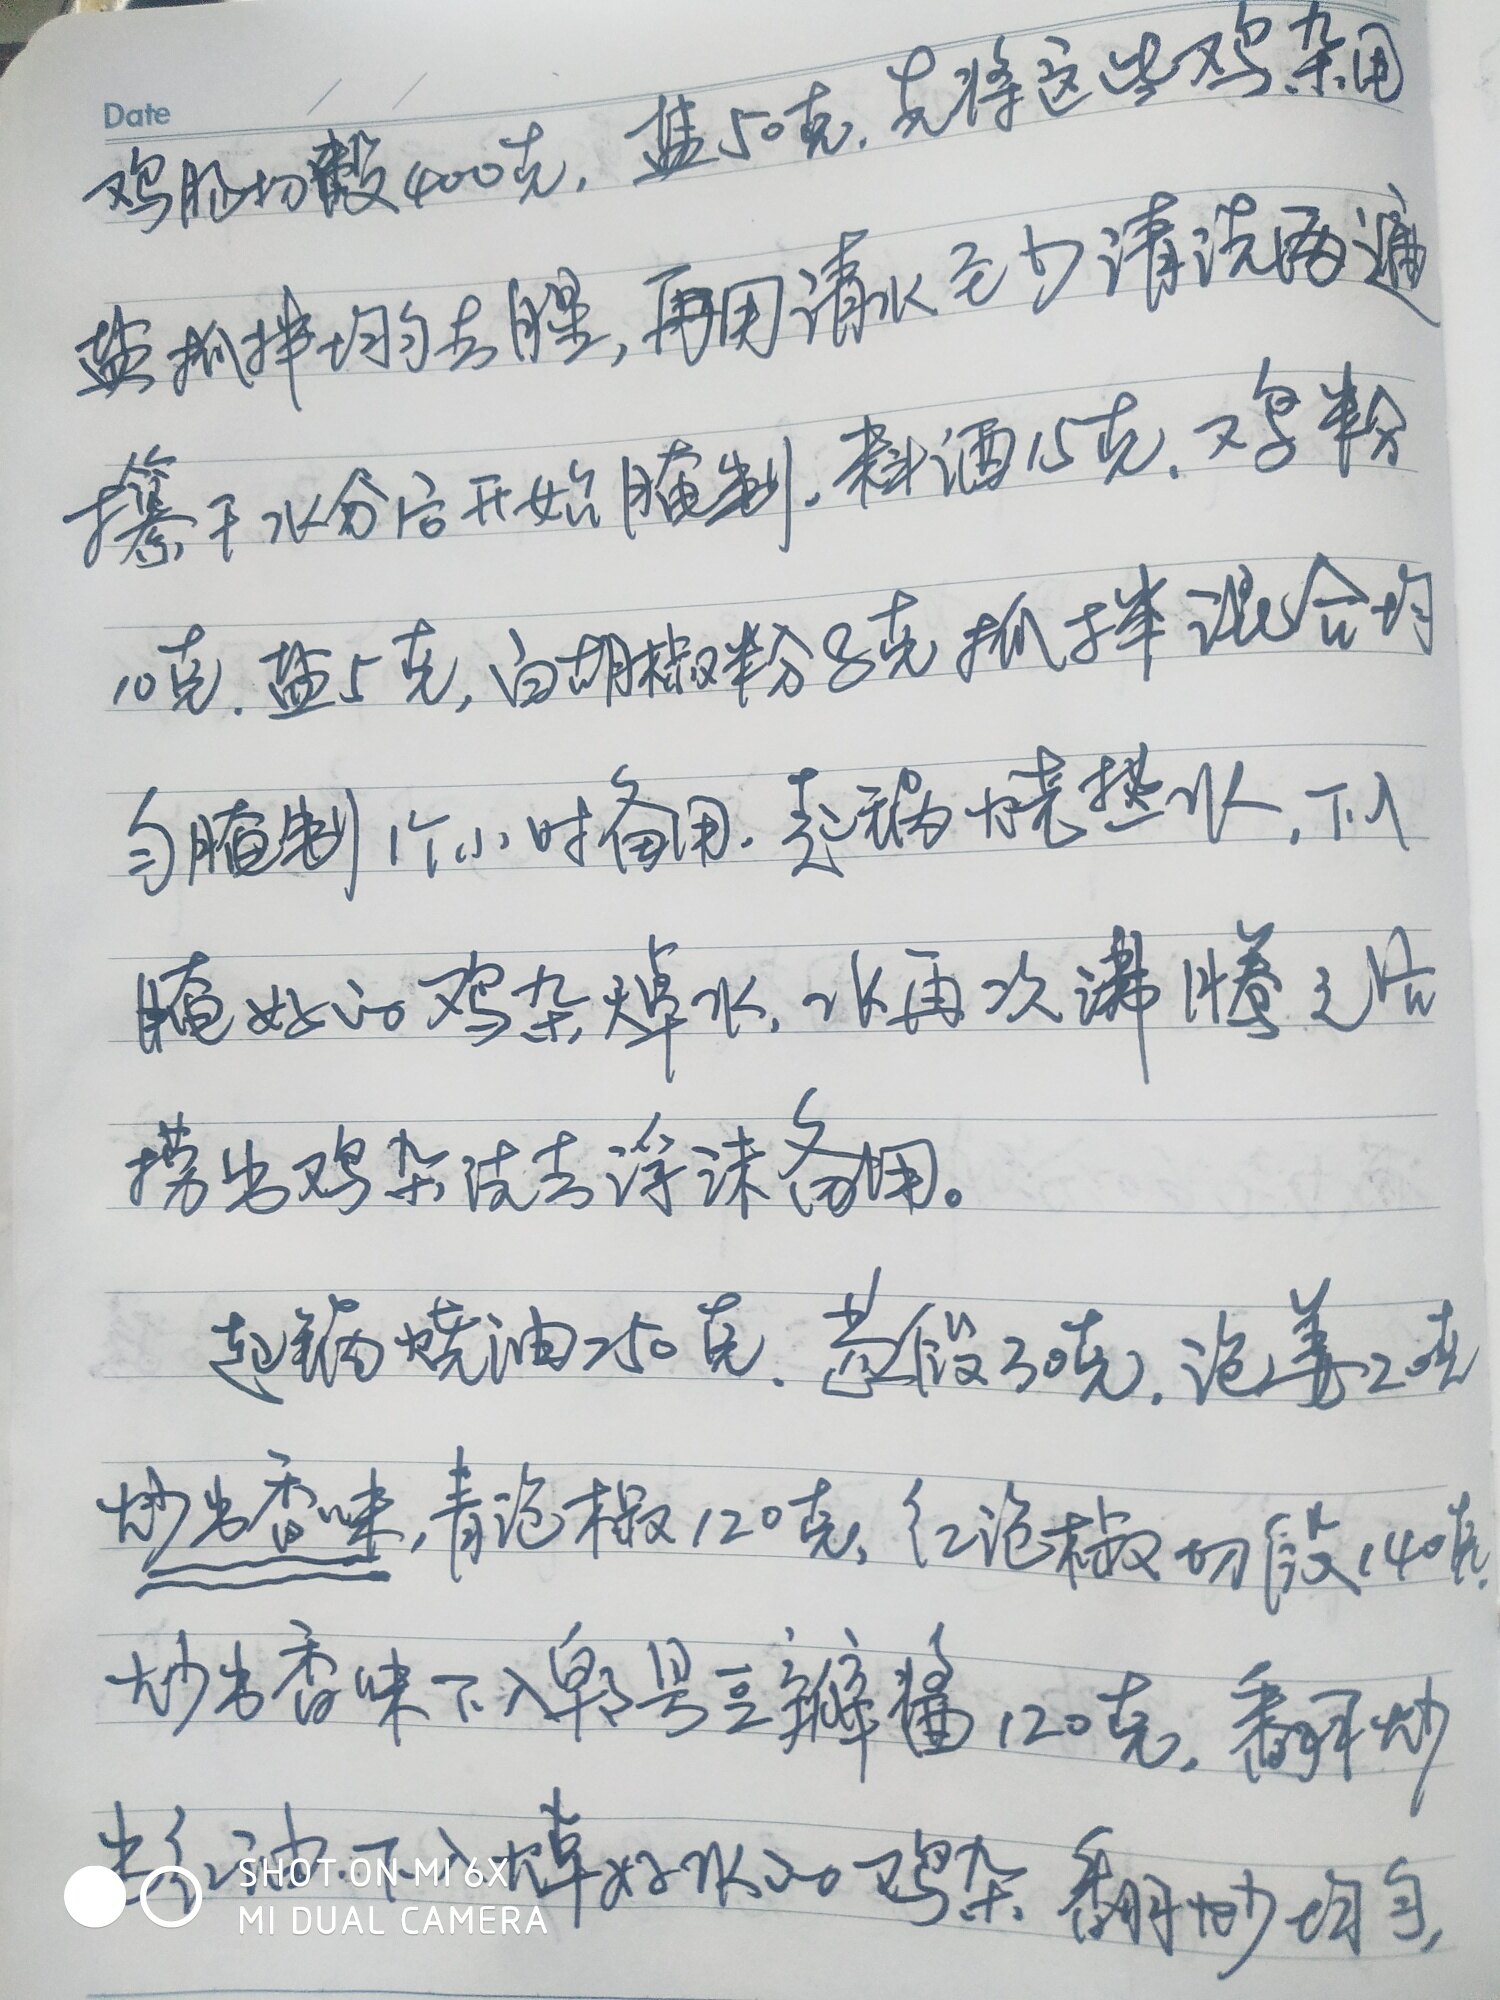 Date
鸡肫切段400克，盐50克.先将这些鸡杂用
盐抓拌均匀去腥，再用清水至少清洗两遍
攥干水分后开始腌制.料酒15克.鸡粉
10克.盐5克，白胡椒粉8克抓拌混合均
匀腌制1个小时备用.起锅烧热水，下入
腌好的鸡杂焯水.水再次沸腾之后
捞出鸡杂洗去浮沫备用。
起锅烧油250克.葱段30克.泡姜20克
炒出香味，青泡椒120克，红泡椒切段140克.
炒出香味下入郫县豆瓣酱120克，翻炒
出红油.下入焯好水的鸡杂翻炒均匀，
SHOT ON MI 6X
MI DUAL CAMERA